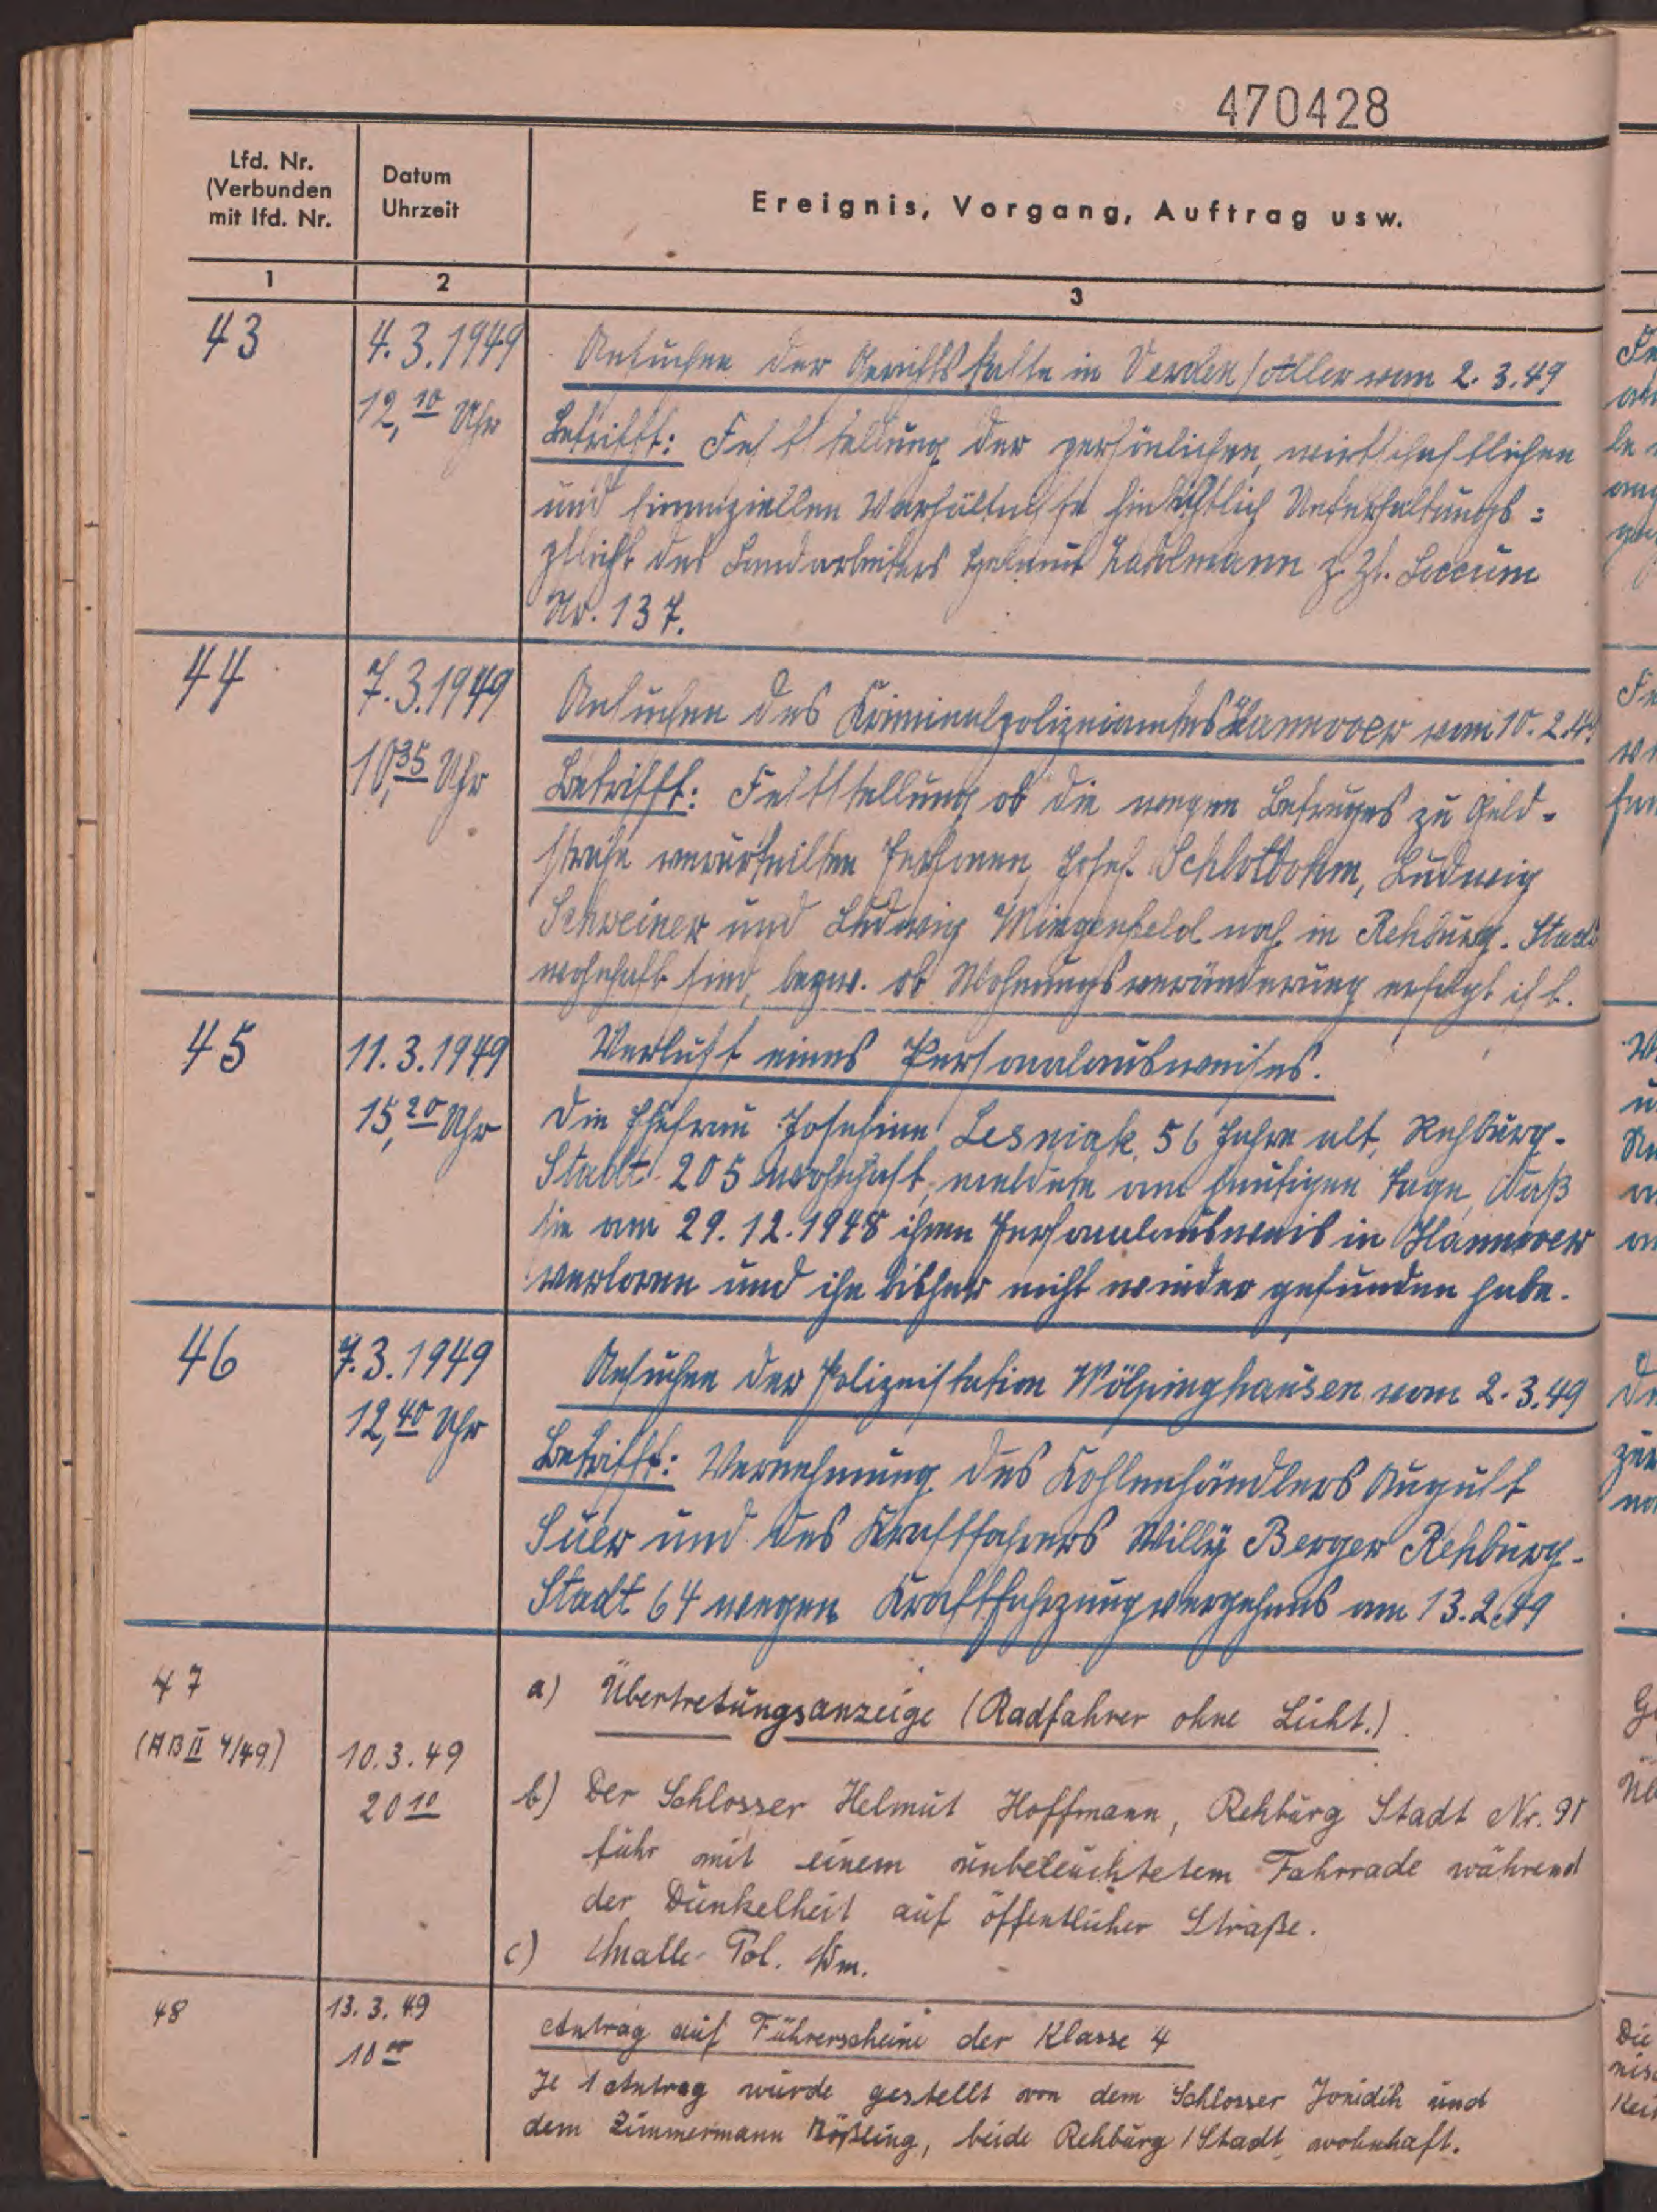 470428
Lfd. Nr.
(Verbunden
mit lfd. Nr.
Datum
Uhrzeit
Ereignis, Vorgang, Auftrag usw.
1
2
3
43
4.3.1949
12,10 Uhr
Ansuchen der Gerichtskasse in Verden/Aller vom 2.3.49
Betrifft: Feststellung der persönlichen, wirtschaftlichen
und finanziellen Verhältnisse hinsichtlich Unterhaltungs=
pflicht des Landarbeiters Helmut z. Zt. Loccum
Nr. 137.
44
7.3.1949
10,35 Uhr
Ansuchen des Kriminalpolizeiamtes Hannover vom 10.2.
Betrifft: Feststellung ob die wegen Betruges zu Geld-
strafe verurteilten Personen, Josef Schlotbohm, Ludwig
Schreiner und Ludwig Mingenfeld noch in Rehburg-Stadt
wohnhaft sind, bezw. ob Wohnungsveränderung erfolgt ist.
45
11.3.1949
15,20 Uhr
Verlust eines Personalausweises.
Die Ehefrau Josefine Lesniak, 56 Jahre alt, Rehburg-
Stadt 205 wohnhaft, meldete am heutigen Tage, daß
sie am 29.12.1948 ihren Personalausweis in Hannover
verloren und ihn bisher nicht wieder gefunden habe.
46
7.3.1949
12,40 Uhr
Ansuchen der Polizeistation Wölpinghausen vom 2.3.49
Betrifft: Vernehmung des Kohlenhändlers August
Suer und des Kraftfahrers Willy Berger Rehburg-
Stadt 64 wegen Kraftfahrzeugvergehens am 13.2.49
47
(AB II 4/49)
10.3.49
20 10
a) Übertretungsanzeige (Radfahrer ohne Licht.)
b) Der Schlosser Helmut Hoffmann, Rehburg Stadt Nr. 91
fuhr mit einem unbeleuchtetem Fahrrade während
der Dunkelheit auf öffentlicher Straße.
c) Pol. Wm.
48
13.3.49
10 00
Antrag auf Führerscheine der Klasse 4
Je 1 Antrag wurde gestellt von dem Schlosser und
dem Zimmermann Rößling, beide Rehburg/Stadt wohnhaft.